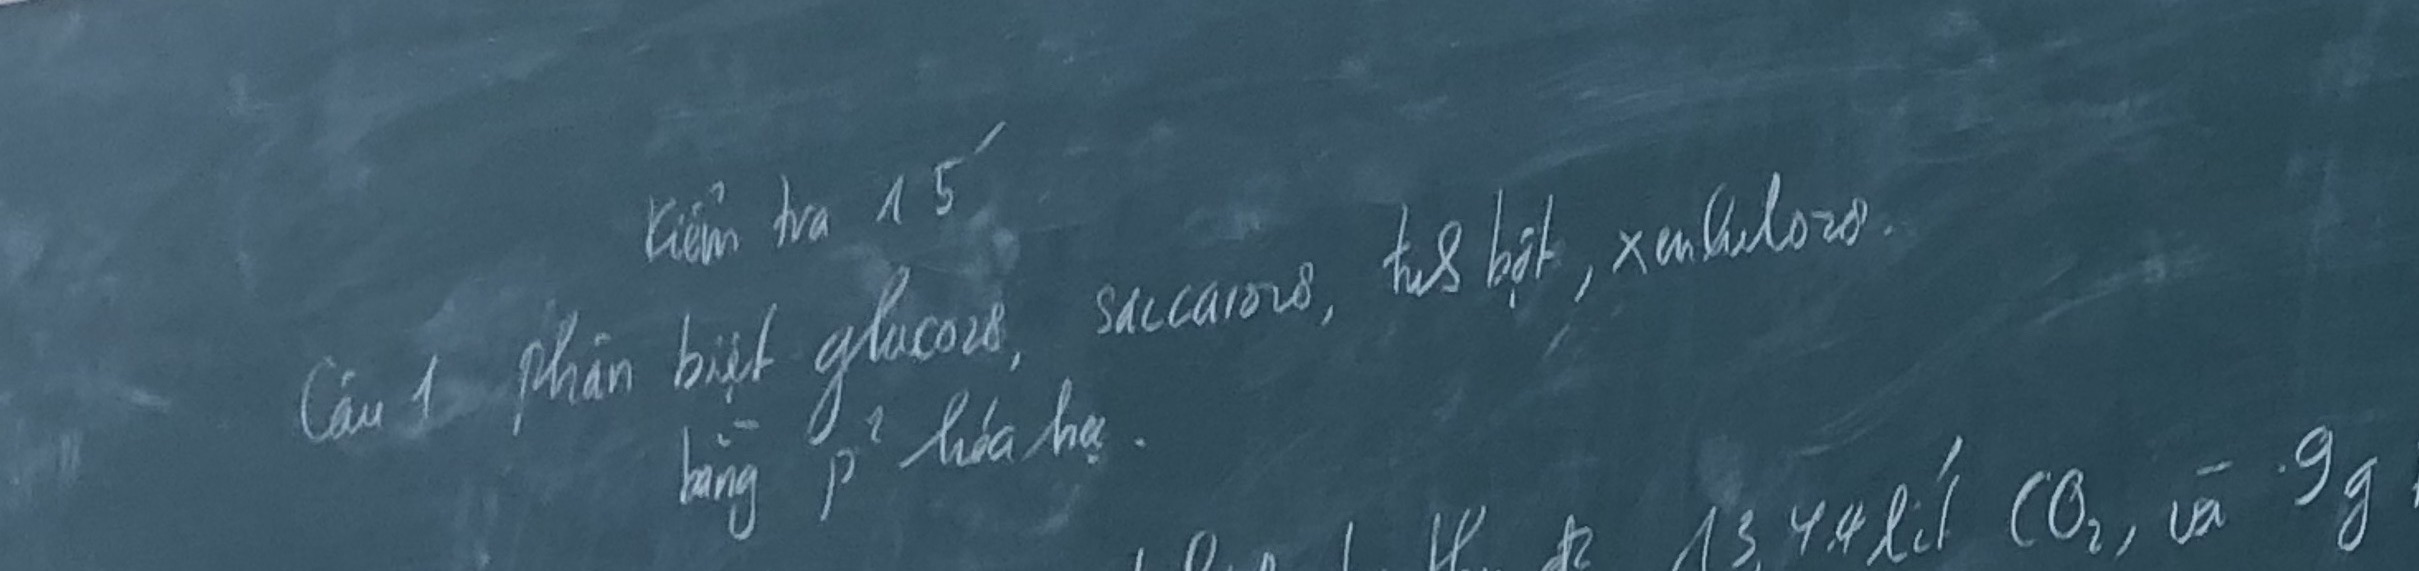 Kiểm tra 15'
Câu 1 phân biệt glucozơ, saccarozơ, tinh bột, xenlulozơ.
bằng p² hóa học.
13,44 lít CO₂, và 9g